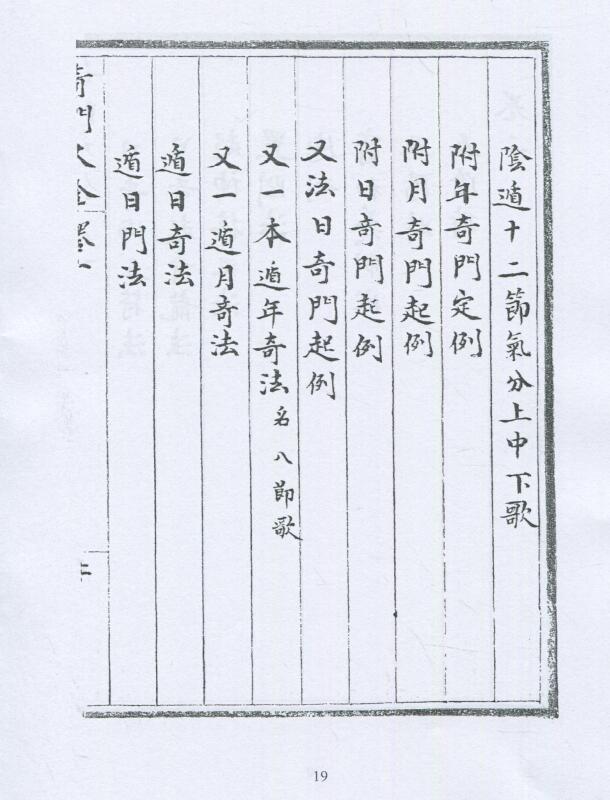 陰遁十二節氣分上中下歌
附年奇門定例
附月奇門起例
附日奇門起例
又法日奇門起例
又一本遁年奇法名八節歌
又一遁月奇法
遁日奇法
遁日門法
奇門大全
19